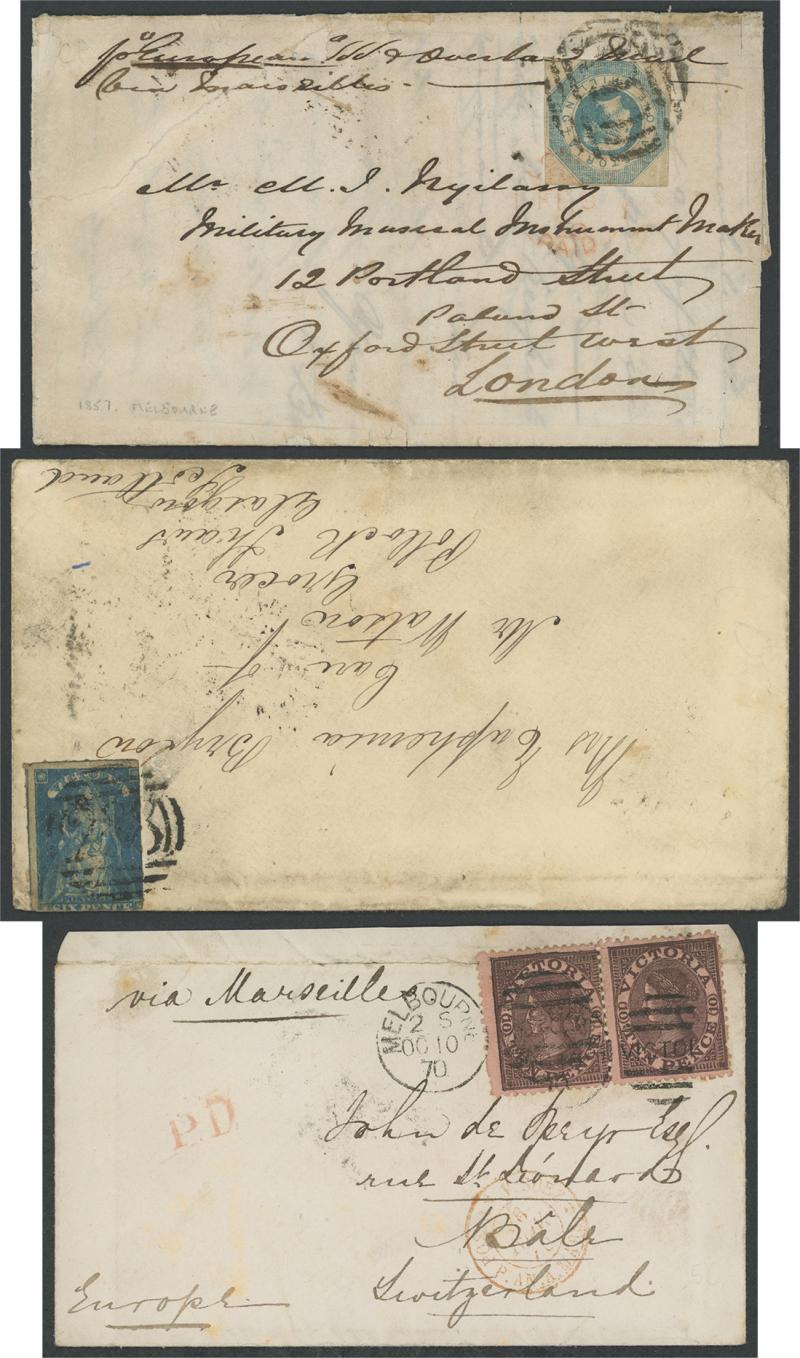 via Marseilles
Mr M. J. Nyilassy
Military Musical Instrument Maker
12 Portland Street
Poland St
Oxford Street West
London
PAID
1857. MELBOURNE
Mrs Euphemia Bryson
Care of
Mr Watson
Grocer
Pollock Shaws
Glasgow
Scotland
VICTORIA
SIX PENCE
via Marseilles
MELBOURNE
2 S
OC 10
70
VICTORIA
TEN PENCE
VICTORIA
TEN PENCE
P.D
John de Speyr Esq.
rue St Léonard
Bâle
Switzerland
Europe